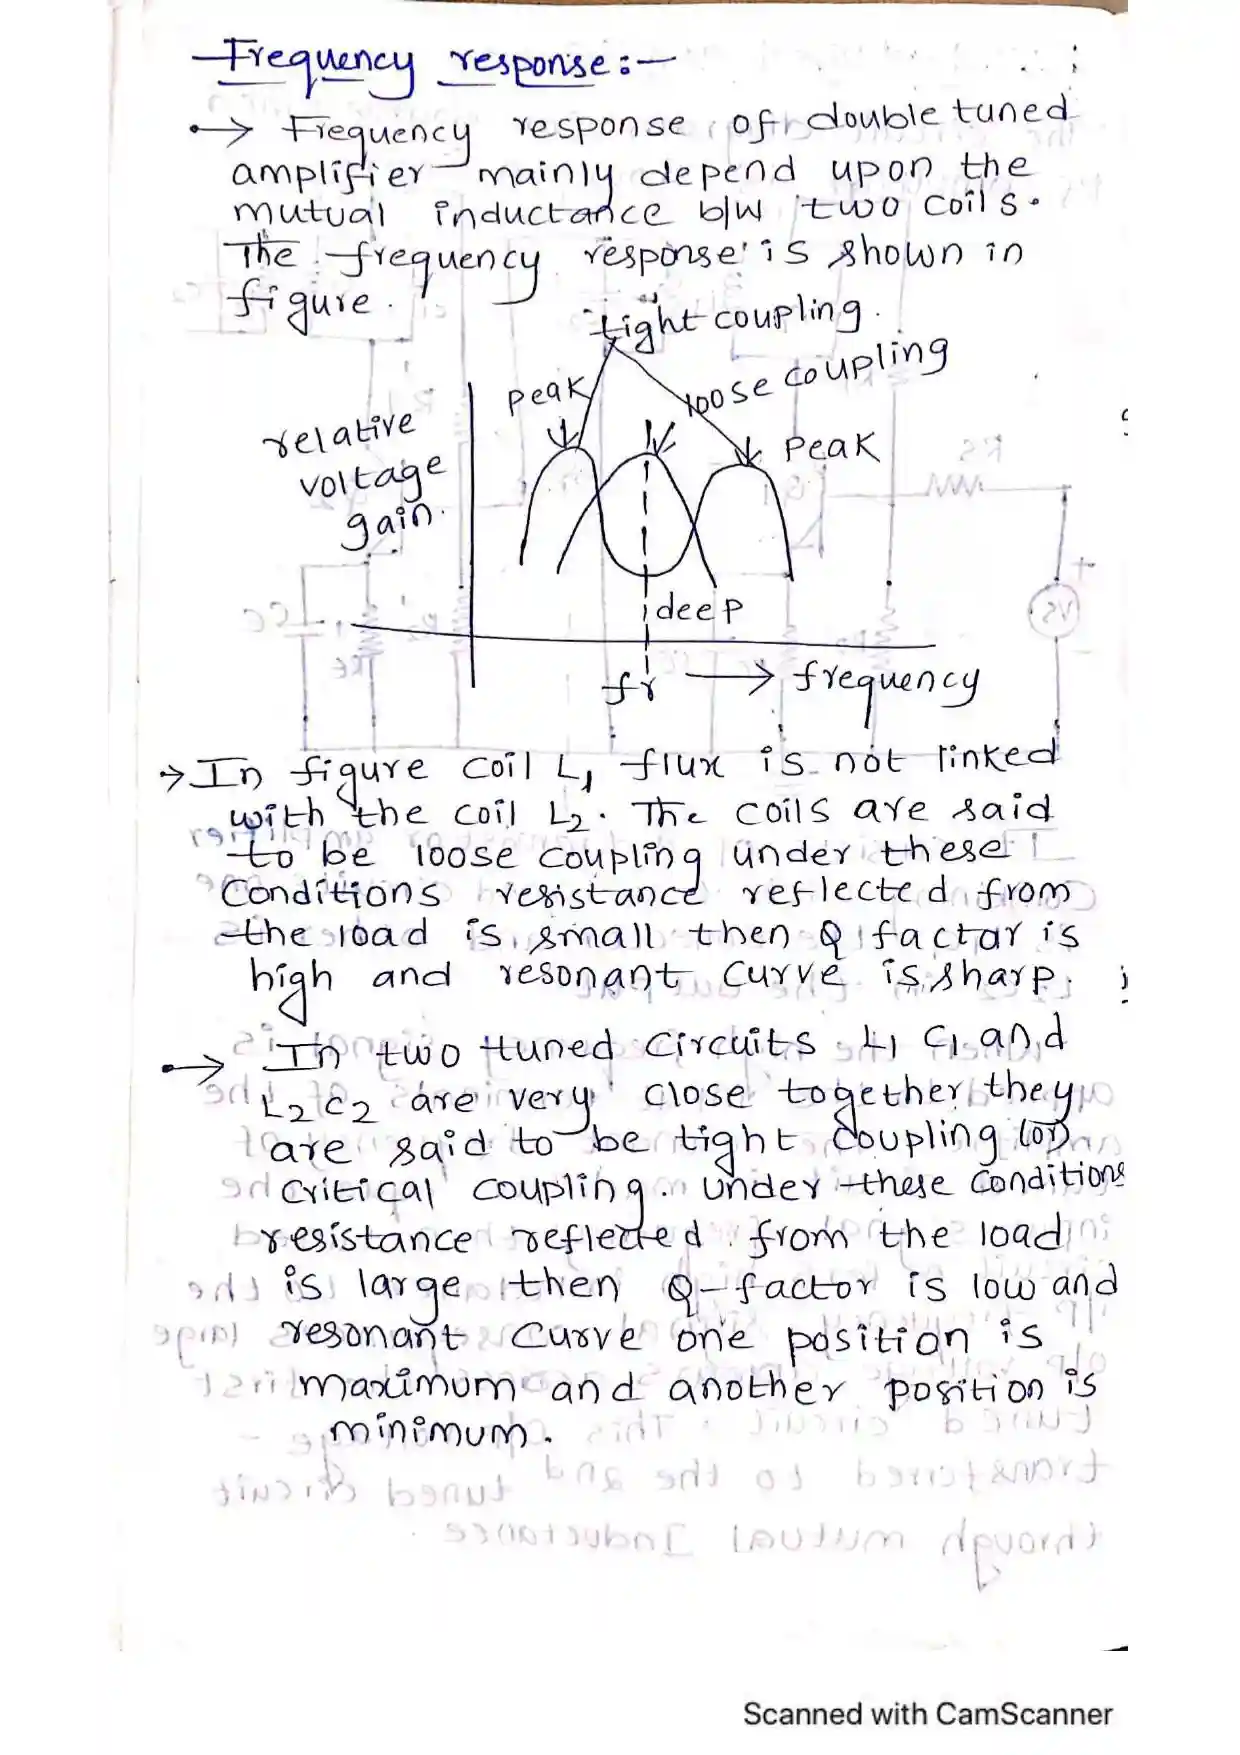 Frequency response:-
→ Frequency response of double tuned
amplifier mainly depend upon the
mutual inductance b/w two coils.
The frequency response is shown in
figure.
tight coupling.
loose coupling
Peak
Peak
relative
voltage
gain.
deep
fr → frequency
→ In figure coil L1 flux is not linked
with the coil L2. The coils are said
to be loose coupling under these
Conditions resistance reflected from
the load is small then Q factar is
high and resonant curve is sharp.
→ In two tuned circuits L1 C1 and
L2 C2 are very close together they
are said to be tight coupling (or)
critical coupling. under these conditions
resistance reflected from the load
is large then Q-factor is low and
resonant curve one position is
maximum and another position is
minimum.
Scanned with CamScanner